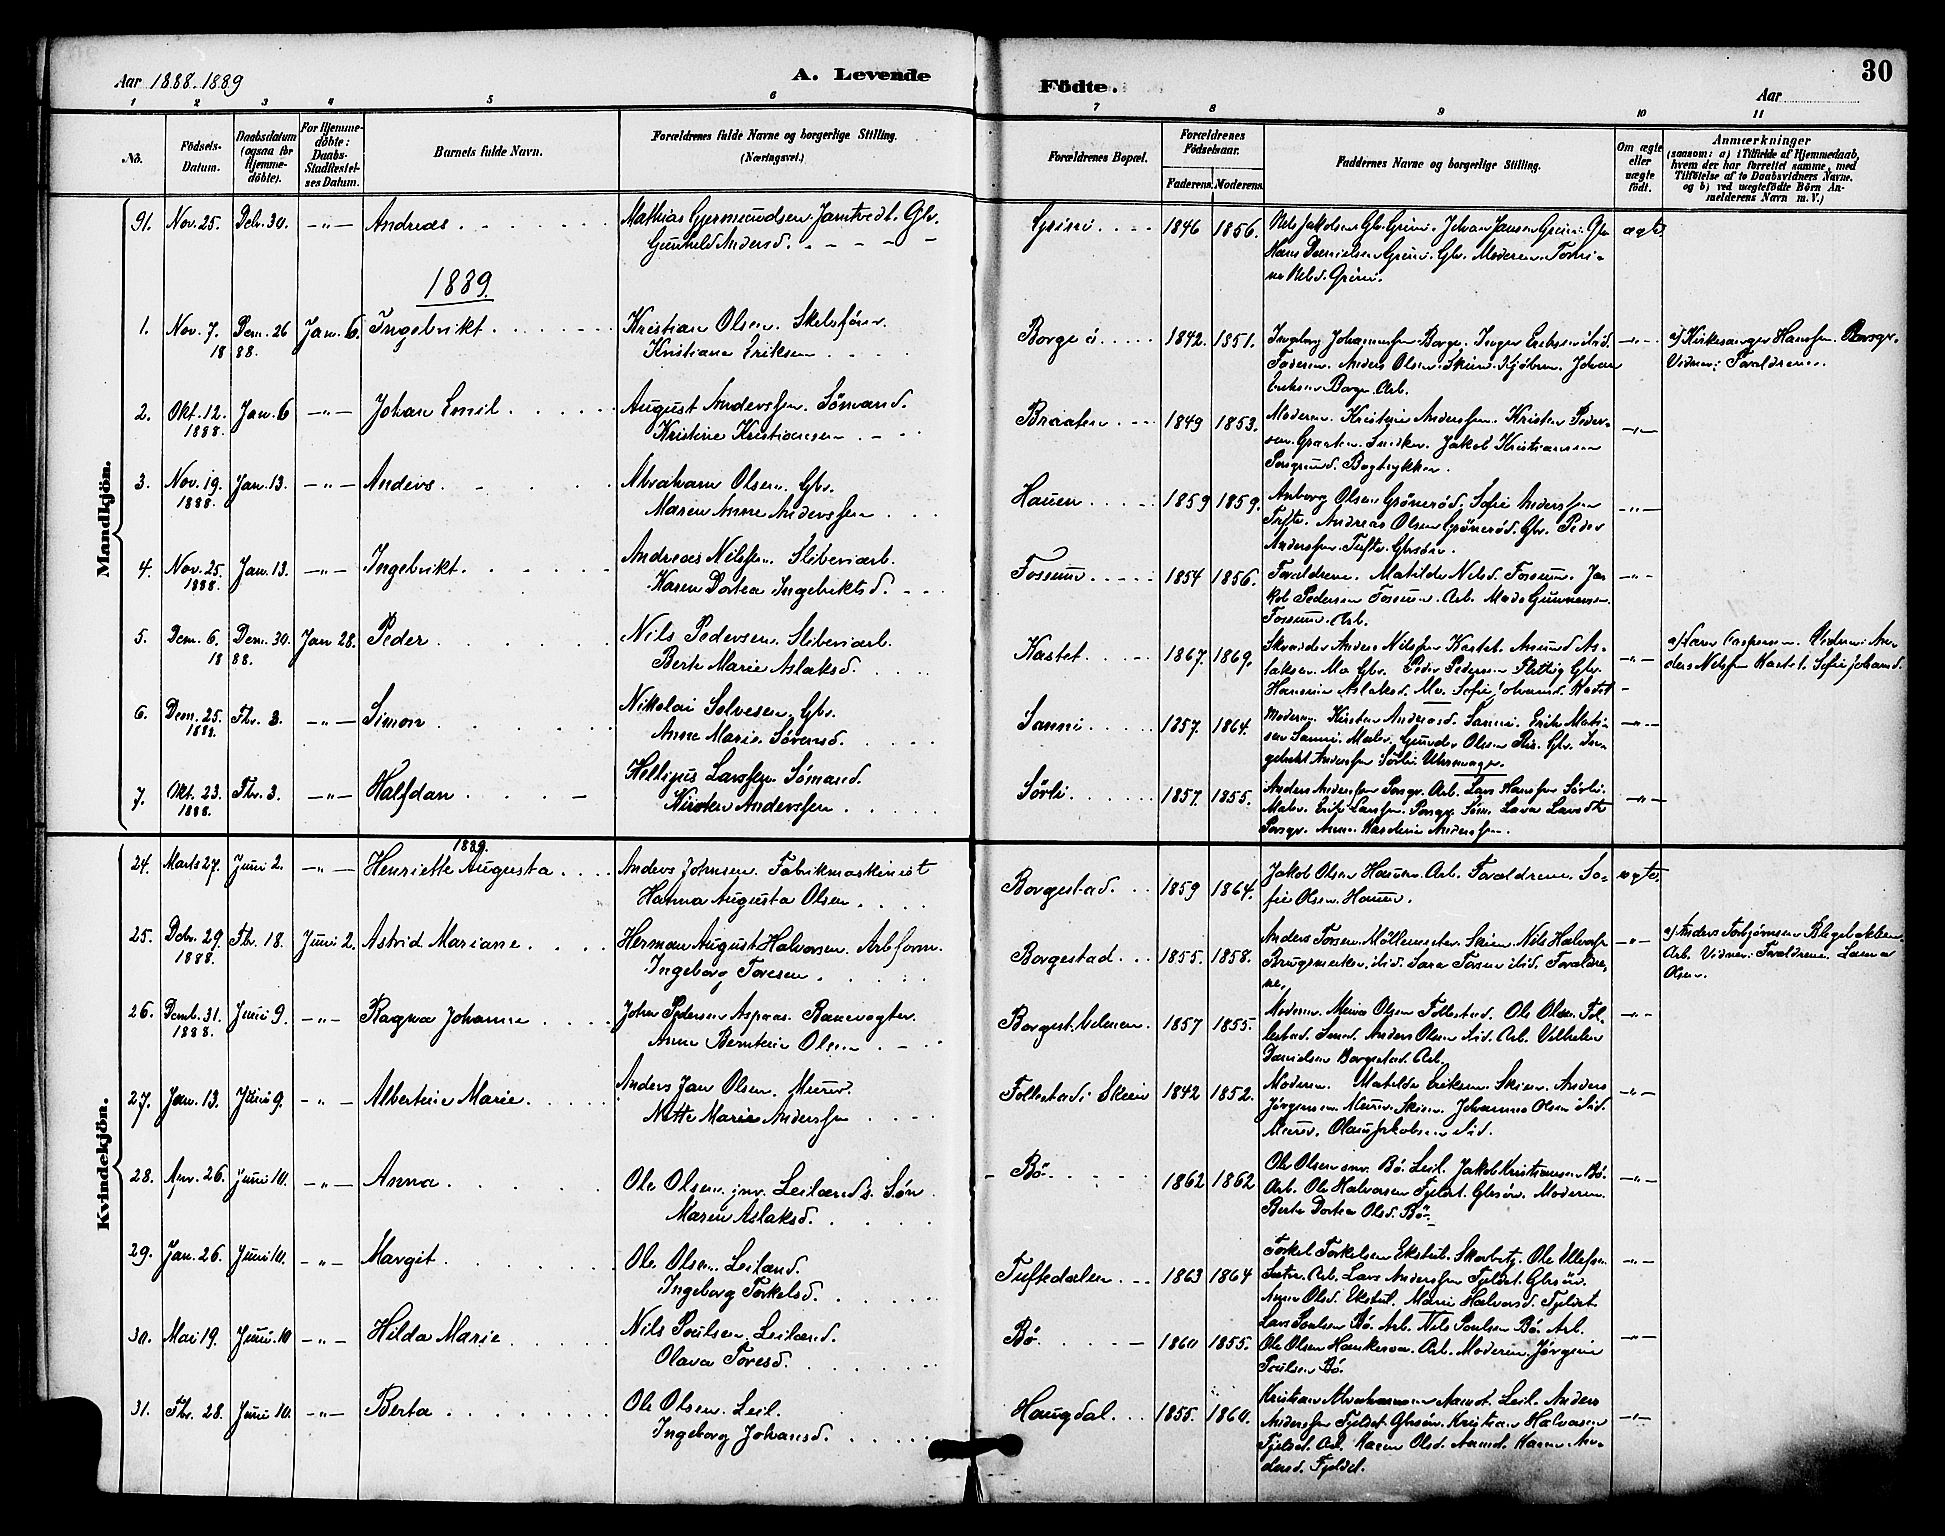 30
Aar 1888-1889
A. Levende
Födte.
Aar
1 2 3 4 5 6 7 8 9 10 11
No.
Födsels-Datum.
Daabsdatum (ogsaa for Hjemme-döbte).
For Hjemme-döbte: Daabs-Stadfæstel-ses Datum.
Barnets fulde Navn.
Forældrenes fulde Navne og borgerlige Stilling.
(Næringsvei.)
Forældrenes Bopæl.
Forældrenes Födselsaar.
Faderens. Moderens.
Faddernes Navne og borgerlige Stilling.
Om ægte eller uægte födt.
Anmærkninger
(saasom: a) i Tilfælde af Hjemmedaab, hvem der har forrettet samme, med Tilföielse af to Daabsvidners Navne, og b) ved uægtefödte Börn An-melderens Navn m. V.)
Mandkjön.
91. Nov. 25. Deb. 30. -"- Andreas
Mathias Gjermundsen Jamtvedt. Gbr.
Gunhild Andersd.
Grini 1846 1856.
Nils Jakobsen Gbr. Grini. Johan Jansen Grini. Gbr
Hans Danielsen Grini. Gbr. Moderen.
Nilsd. Grini.
ægte
1889.
1. Nov. 7. 1888. Dem. 26 Jan. 6. Ingebrikt
Kristian Olsen.
Kristiane Eriksen
Borge ö 1842. 1851.
Ingeborg Johannessen Borge. Inger Eriksen ibid.
Faderen. Anders Olsen. Skien. Johan
Eriksen Borge. Arb.
-"-
a) Kirkesanger Hansen. Porsgr.
Vidner: Forældrene.
2. Okt. 12. 1888. Jan. 6 -"- Johan Emil
August Anderssen. Sömand.
Kristine Kristiansen
Braaten 1849 1853.
Moderen. Kristine Anderssen. Kristen Peder-
sen Graaten. Snedker. Jakob Kristiansen
Porsgrund. Bogtrykker.
-"-
3. Nov. 19. 1888. Jan. 13. -"- Anders
Abraham Olsen. Gbr.
Maren Anne Anderssen
Hauen 1859 1859.
Anborg Olsen Grönerød. Sofie Anderssen
Tufte. Andreas Olsen Grönerød. Gbr. Peder
Anderssen Tufte. Gbrsön.
-"-
4. Nov. 25. 1888. Jan. 13. -"- Ingebrikt
Andreas Nilssen. Sliberiarb.
Karen Dortea Ingebriktsd.
Fossum 1854 1856.
Forældrene. Matilde Nilsd. Fossum. Ja-
kob Pedersen Fossum. Arb. Mads Gunnarsen
Fossum. Arb.
-"-
5. Dem. 6. 1888. Dem. 30. Jan 28. Peder
Nils Pedersen. Sliberiarb.
Berte Marie Aslaksd.
Kastet 1867. 1869.
Anders Nilssen Kastet. Amund As-
laksen. Mo Gbr. Peder Pedersen Gbr.
Aslaksd. Mo. Sofie Johansd. Kastet
-"-
a) Caspersen. Vidner: An-
ders Nilssen Kastet. Sofie Johansd.
6. Dem. 25. 1888. Fbr. 3. -"- Simon
Nikolai Solvesen. Gbr.
Anne Marie Sörensd.
Sanni 1857. 1864.
Moderen. Kirsten Andersd. Sanni. Erik Mati-
sen Sanni. Maler. Gunder Olsen Gbr. In-
gebrikt Anderssen Sörli. Uhrmager.
-"-
7. Okt. 23. 1888. Fbr. 3. -"- Halfdan
Hellinius Larssen. Sömand.
Kirsten Anderssen
Sörli 1857. 1855.
Anders Anderssen Porsgr. Arb. Lars Hanssen Sörli.
Maler. Erik Larssen. Porsgr. Söm. Larsdtr
Porsgr. Anne Katrine Anderssen.
-"-
Kvindekjön.
1889.
24. Marts 27. Juni 2. -"- Henriette Augusta
Anders Johnsen. Fabrikmaskinist
Hanna Augusta Olsen
Borgestad. 1859 1864.
Jakob Olsen Hauen. Arb. Forældrene. So-
fie Olsen. Hauen.
ægte
25. Debr. 29. 1888. Fbr. 18. Juni 2. Astrid Mariane
Herman August Halvorsen. Arbform.
Ingeborg Toresen
Borgestad 1855. 1858.
Anders Toresen. Möllemester. Skien. Nils Halvorsen
ibid. Sara Toresen ibid. Forældre-
ne.
-"-
a) Anders Torbjörnsen Blegebakken.
Arb. Vidner: Forældrene.
Olsen.
26. Demb. 31. 1888. Juni 9. -"- Ragna Johanne
Johan Pedersen Aspaas. Banevogter.
Anne Berntine Olsen
Borgest. Velmen. 1857 1855.
Moderen. Olsen Follestad. Ole Olsen Fol-
lestad. Smed. Anders Olsen ibid. Arb. Vilhelm
Danielsen Borgestad. Arb.
-"-
27. Jan. 13. Juni 9. -"- Albertine Marie
Anders Jan Olsen. Murer.
Nette Marie Anderssen
Follestad: Skien 1842 1852.
Moderen. Matilde Eriksen. Skien. Anders
Jörgensen. Murer. Skien. Johannes Olsen ibid.
Murer. Olaus Jakobsen ibid.
-"-
28. Apr. 26. Juni 10. -"- Anna
Ole Olsen jnr. Leilænds. Sön
Maren Aslaksd.
Bö 1862 1862
Ole Olsen snr. Bö. Leil. Jakob Kristiansen Bö.
Arb. Ole Halvorsen Fjeldet. Gbrsön. Moderen.
Berte Dortea Olsd. Bö
-"-
29. Jan. 26. Juni 10. -"- Margit
Ole Olsen. Leilænd.
Ingeborg Torkelsd.
Tuftedalen 1863 1864
Torkel Torkelsen Ekstul. Ole Ellefsen
Sætre. Arb. Lars Anderssen Fjeldet. Gbrsön.
Anne Olsd. Ekstul. Marie Halvorsd. Fjeldet
-"-
30. Mai 19. Juni 10 -"- Hilda Marie
Nils Poulsen. Leilænd.
Olava Toresd.
Bö 1860 1855.
Lars Poulsen Bö. Arb. Nils Poulsen Bö. Arb.
Ole Olsen. Arb. Moderen. Jörgine
Poulsen Bö.
-"-
31. Fbr. 28. Juni 10. -"- Berta
Ole Olsen. Leil.
Ingeborg Johansd.
Haugdal 1855. 1860.
Kristian Abrahamsen Aamot. Leil. Anders
Anderssen Fjeldet Gbrsön. Kristian Halvorsen
Fjeldet. Arb. Karen Olsd. Aamot. Karen An-
dersd. Fjeldet.
-"-